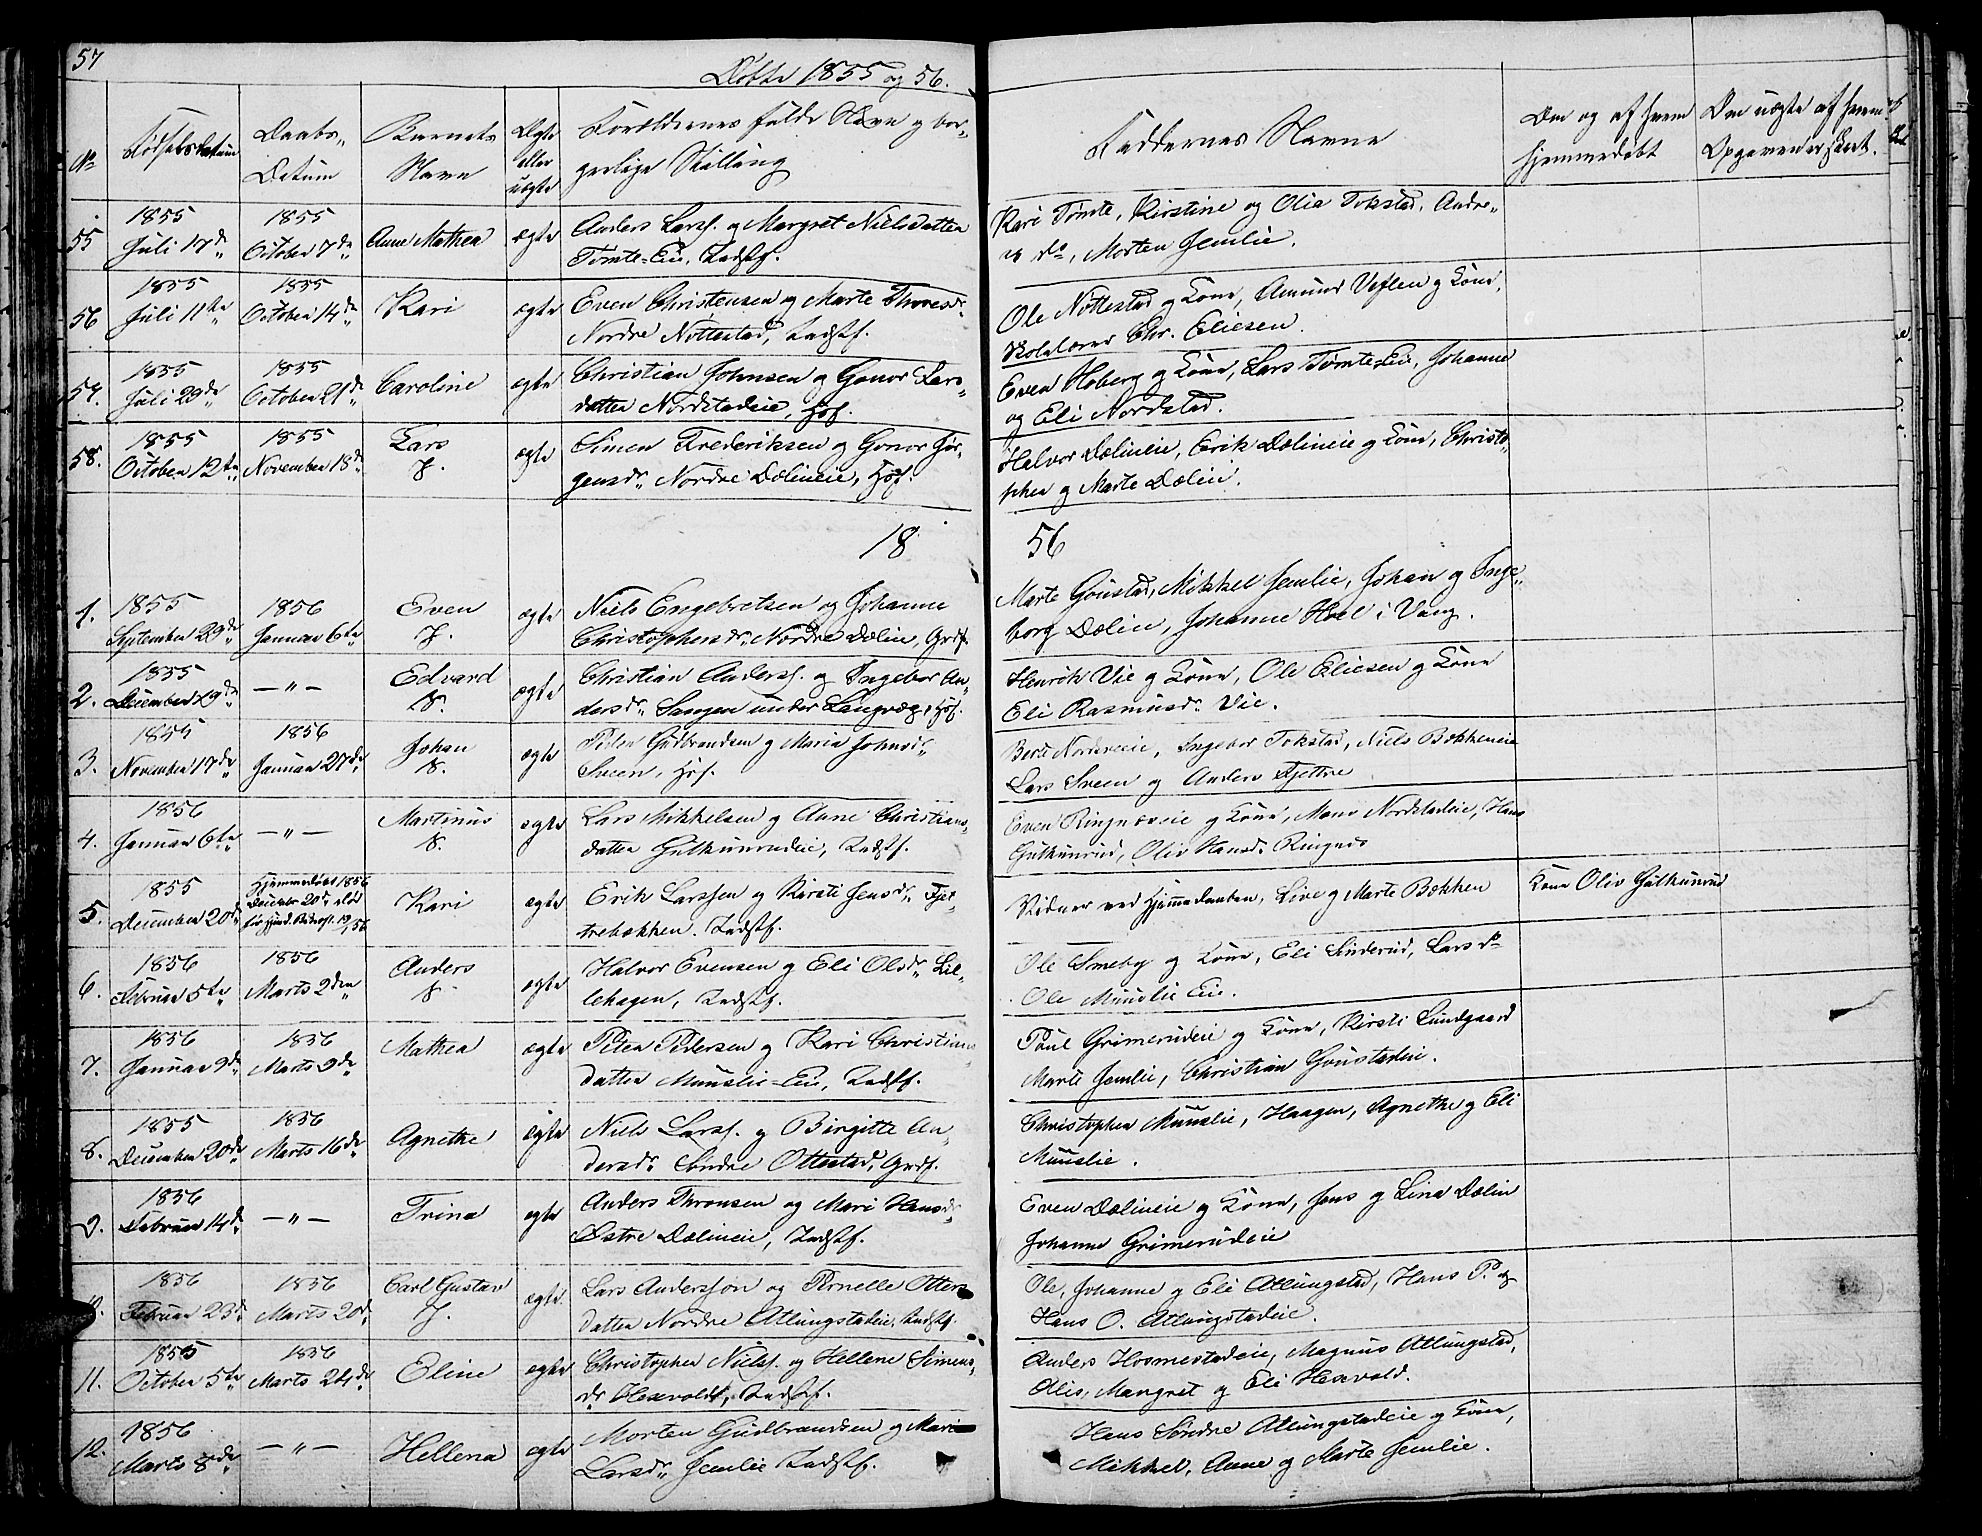 57
Døbte 1855 og 56.
No
Fødselsdatum
Daabs-
Datum
Barnets
Navn
Ægte
eller
uægte
Forældrenes fulde Navn og bor-
gerlige Stilling
Faddernes Navne
Om og af hvem
hjemmedøbt
Om uægte af hvem
Opgaven er skeet.
55
1855
Juli 17de
1855
October 7de
Anne Mathea
ægte
Anders Larss. og Margret Nielsdatter
Tomte-Eie, Indstf.
Kari Tomte, Kirstine og Olia Tokstad, Andre-
as do, Morten Jemlie.
56
1855
Juli 11te
1855
October 14de
Kari
ægte
Even Christensen og Marte Thoresdr.
Nordre Nøttestad, Indstf.
Ole Nøttestad og Kone, Amund Veflen og Kone,
Skolelærer Chr. Eliesen.
57.
1855
Juli 29de
1855
October 21de
Caroline
ægte
Christian Johnsen og Gonor Lars-
datter Nordstadeie, Hsf.
Even Hoberg og Kone, Lars Tomte-Eie, Johanne
og Eli Nordstad.
58.
1855
October 12te
1855
November 18de
Lars
J.
ægte
Simen Frederiksen og Gonor Jør-
gensdr. Nordre Dælineie, Hsf.
Halvor Dælineie, Erik Dælineie og Kone, Christo-
pher og Marte Dælin.
18 56
1.
1855
September 29de
1856
Januar 6te
Even
J.
ægte
Niels Engebretsen og Johanne
Christophersdr. Nordre Dælin, Grdf.
Marte Gonstad, Mikkel Jemlie, Johan og Inge-
borg Dælin, Johanne Hoel i Vang.
2.
1855
December 29de
— " —
Edvard
V.
ægte
Christian Anderss. og Ingebor An-
dersdr. Sangen under Sangvæg, Hsf.
Henrik Vie og Kone, Ole Eliesen og Kone
Eli Rasmusdr. Vie.
3.
1855
November 17de
1856
Januar 27de
Johan
V.
ægte
Peter Gudbrandsen og Maria Johnsdr.
Sveen, Hsf.
Berte Nordsveeie, Ingebor Tokstad, Niels Bækkeneie
Lars Sveen og Anders Fjettre
4.
1856
Januar 6te
— " —
Martinus
V.
ægte
Lars Mikkelsen og Anne Christians-
datter Gulkunrudeie, Indstf.
Even Ringnæseie og Kone, Mons Nordstadeie, Hans
Gulkunrud, Oliv Hansdr. Ringnæs
5.
1855
December 20de
Hjemmedøbt 1856
December 20de, død
Kari
ægte
Erik Larssen og Kirsti Jensdr. Fjet-
trebækken. Indstf.
Vidner ved Hjemmedaaben, Live og Marte Bækken
Kone Oliv Gulkunrud
6.
1856
Februar 5te
1856
Marts 2den
Anders
V.
ægte
Halvor Evensen og Eli Olsdr. Lil-
lehagen, Indstf.
Ole Smeby og Kone, Eli Sinderud, Lars do
Ole Muuslie Eie.
7.
1856
Januar 9de
1856
Marts 9de
Mathea
ægte
Peter Pedersen og Kari Christians
datter Muuslie-Eie, Indstf.
Poul Grimerudeie og Kone, Kirsti Lundgaard
Marte Jemlie, Christian Gonstadeie.
8.
1855
December 20de
1856
Marts 16de
Agnethe
ægte
Niels Larss. og Birgitte An-
dersdr. Søndre Ottestad, Grdf.
Christopher Muuslie, Haagen, Agnethe og Eli
Muuslie.
9.
1856
Februar 14de
— " —
Trina
ægte
Anders Thronsen og Mari Hansdr.
Østre Dælineie, Indstf.
Even Dælineie og Kone, Jens og Lina Dælin
Johanne Grimerudeie
10.
1856
Februar 23de
1856
Marts 20de
Carl Gustav
J.
ægte
Lars Anderssøn og Pernelle Otters
datter Nordre Atlungstadeie, Indstf.
Ole, Johanne og Eli Atlungstad, Hans P. og
Hans O. Atlungstadeie.
11.
1855
October 5te
1856
Marts 24de
Eline
ægte
Christopher Nielss. og Hellene Simens-
dr. Hexevold, Indstf.
Anders Hosmestadeie, Magnus Atlungstad,
Olis, Mangret og Eli Hexevold.
12.
1856
Marts 8de
— " —
Hellena
ægte
Morten Gudbrandsen og Mari
Larsdr. Jemlie Indstf.
Hans Søndre Atlungstadeie og Kone,
Mikkel, Anne og Marte Jemlie.